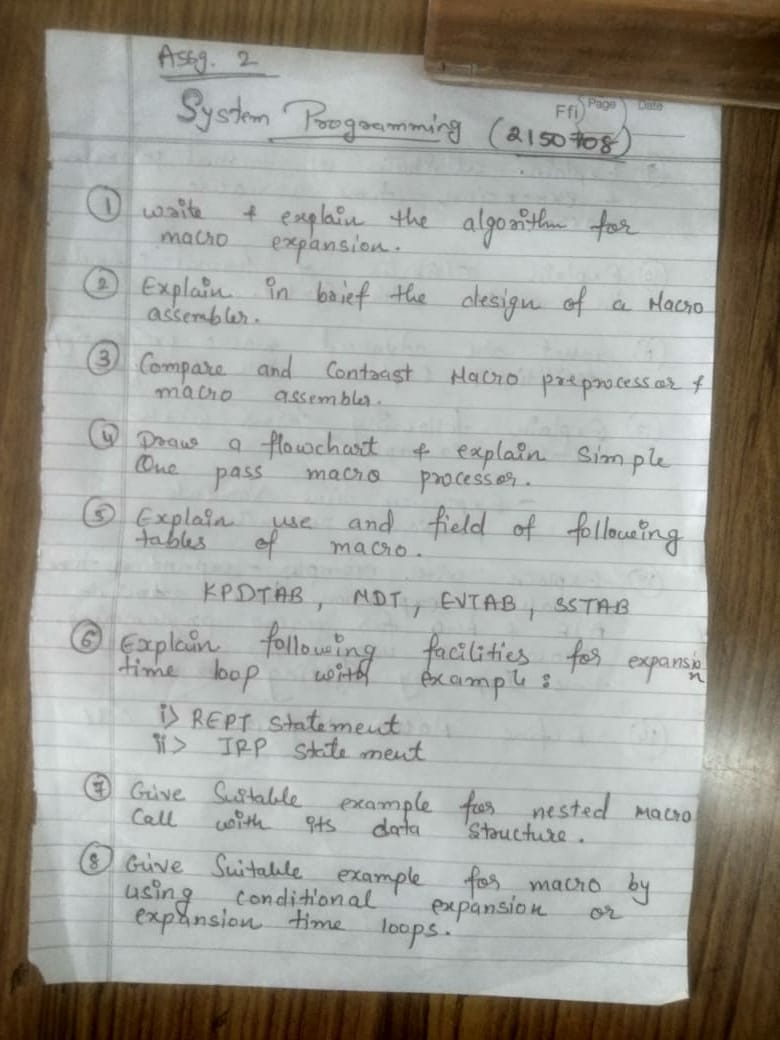 Assg. 2
Ffi Page Date
System Programming (2150708)
① Write & explain the algorithm for
macro expansion.
② Explain in brief the design of a Macro
assembler.
③ Compare and Contrast Macro preprocessor &
macro assembler.
④ Draw a flowchart & explain Simple
One pass macro processor.
⑤ Explain use and field of following
tables of macro.
KPDTAB, MDT, EVTAB, SSTAB
⑥ Explain following facilities for expansion
time loop with example:
i> REPT statement
ii> IRP statement
⑦ Give Suitable example for nested Macro
Call with its data structure.
⑧ Give Suitable example for macro by
using conditional expansion or
expansion time loops.